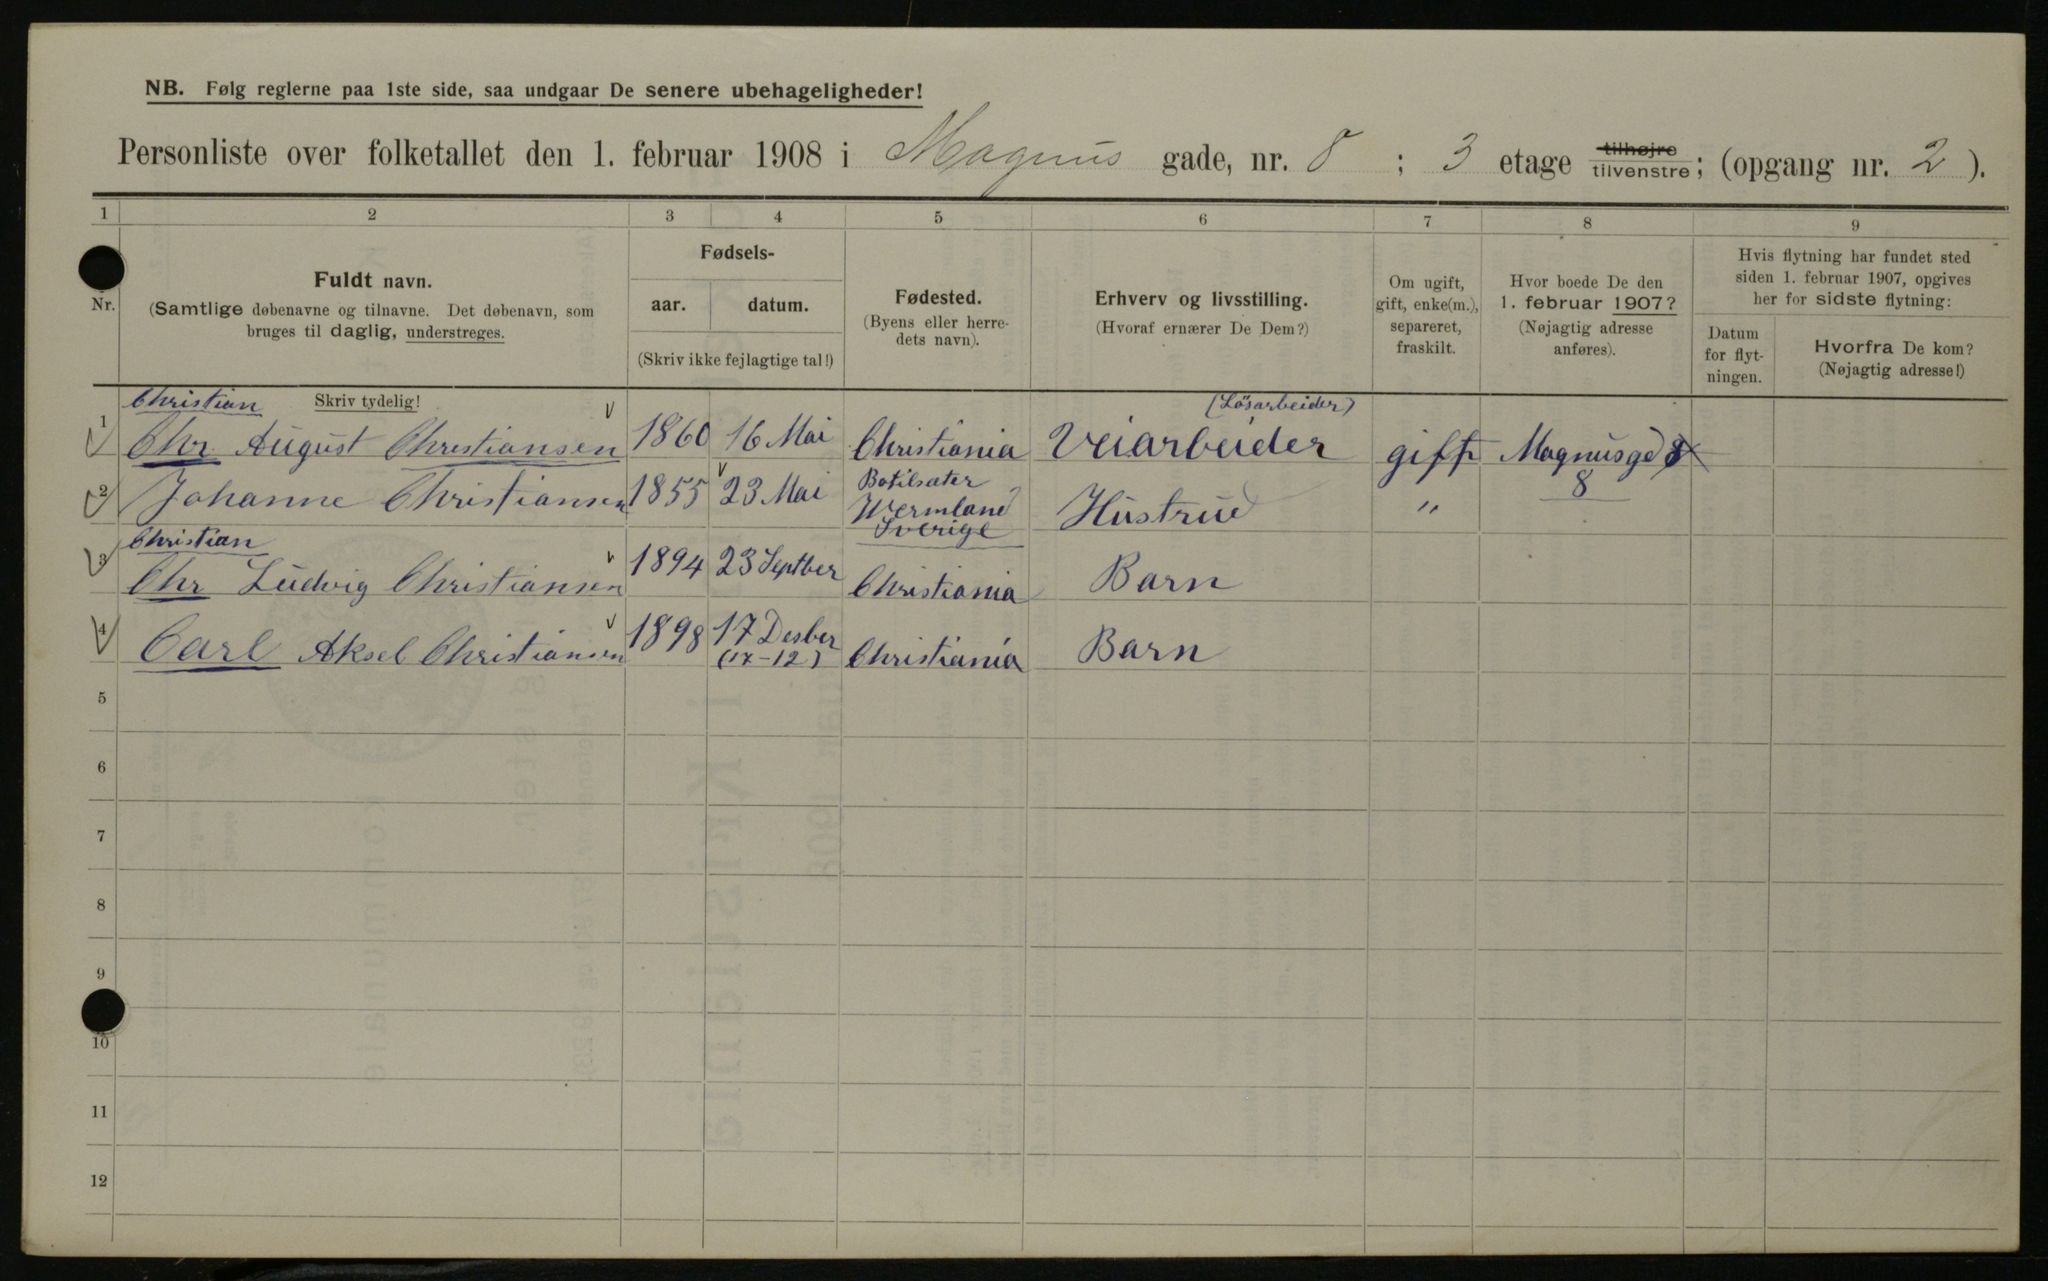 NB. Følg reglerne paa 1ste side, saa undgaar De senere ubehageligheder!
Personliste over folketallet den 1. februar 1908 i Magnus gade, nr. 8 ; 3 etage tilhøjre tilvenstre; (opgang nr. 2 ).
1 2 3 4 5 6 7 8 9
Nr.
Fuldt navn.
(Samtlige døbenavne og tilnavne. Det døbenavn, som
bruges til daglig, understreges.
Skriv tydelig!
Fødsels-
aar. datum.
(Skriv ikke fejlagtige tal!)
Fødested.
(Byens eller herre-
dets navn).
Erhverv og livsstilling.
(Hvoraf ernærer De Dem?)
Om ugift,
gift, enke(m.),
separeret,
fraskilt.
Hvor boede De den
1. februar 1907?
(Nøjagtig adresse
anføres).
Hvis flytning har fundet sted
siden 1. februar 1907, opgives
her for sidste flytning:
Datum
for flyt-
ningen.
Hvorfra De kom?
(Nøjagtig adresse!)
Christian
(Løsarbeider)
1 Chr. August Christiansen 1860 16 Mai Christiania Veiarbeider gift Magnusgd
8
2 Johanne Christiansen 1855 23 Mai Botilsæter
Wermland
Sverige
Hustrue "
Christian
3 Chr Ludvig Christiansen 1894 23 Septber Christiania Barn
4 Carl Aksel Christiansen 1898 17 Desber
(17-12) Christiania Barn
5
6
7
8
9
10
11
12